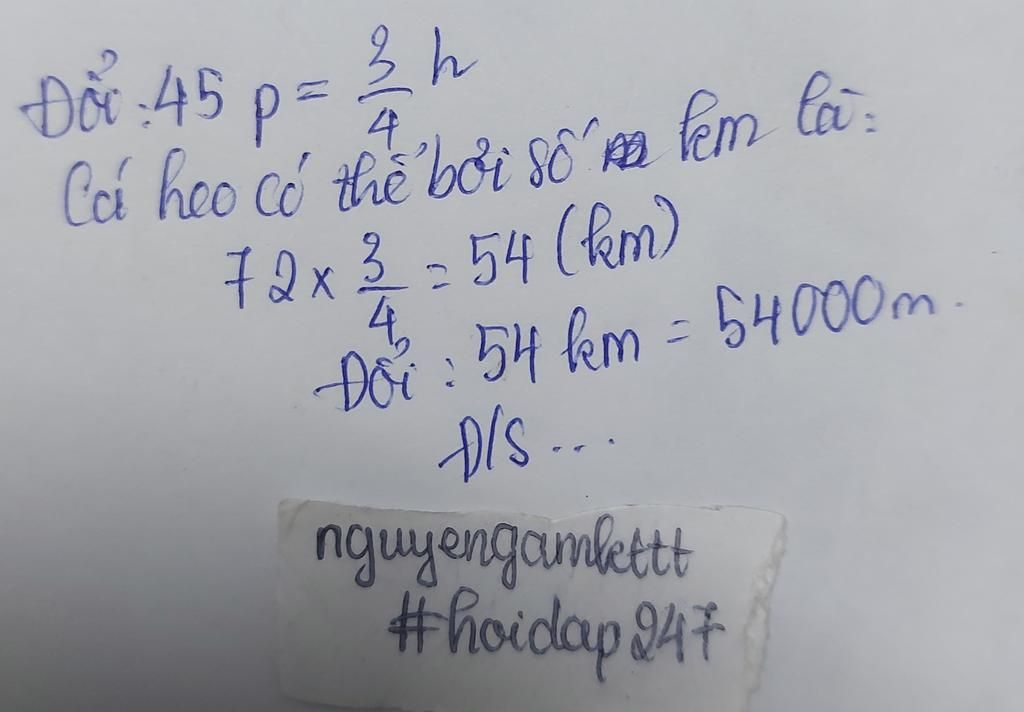 Đổi: 45 p = 3/4 h
Cá heo có thể bơi số km là:
72 x 3/4 = 54 (km)
Đổi: 54 km = 54000m.
Đ/S ...
nguyengamkttt
#hoidap247